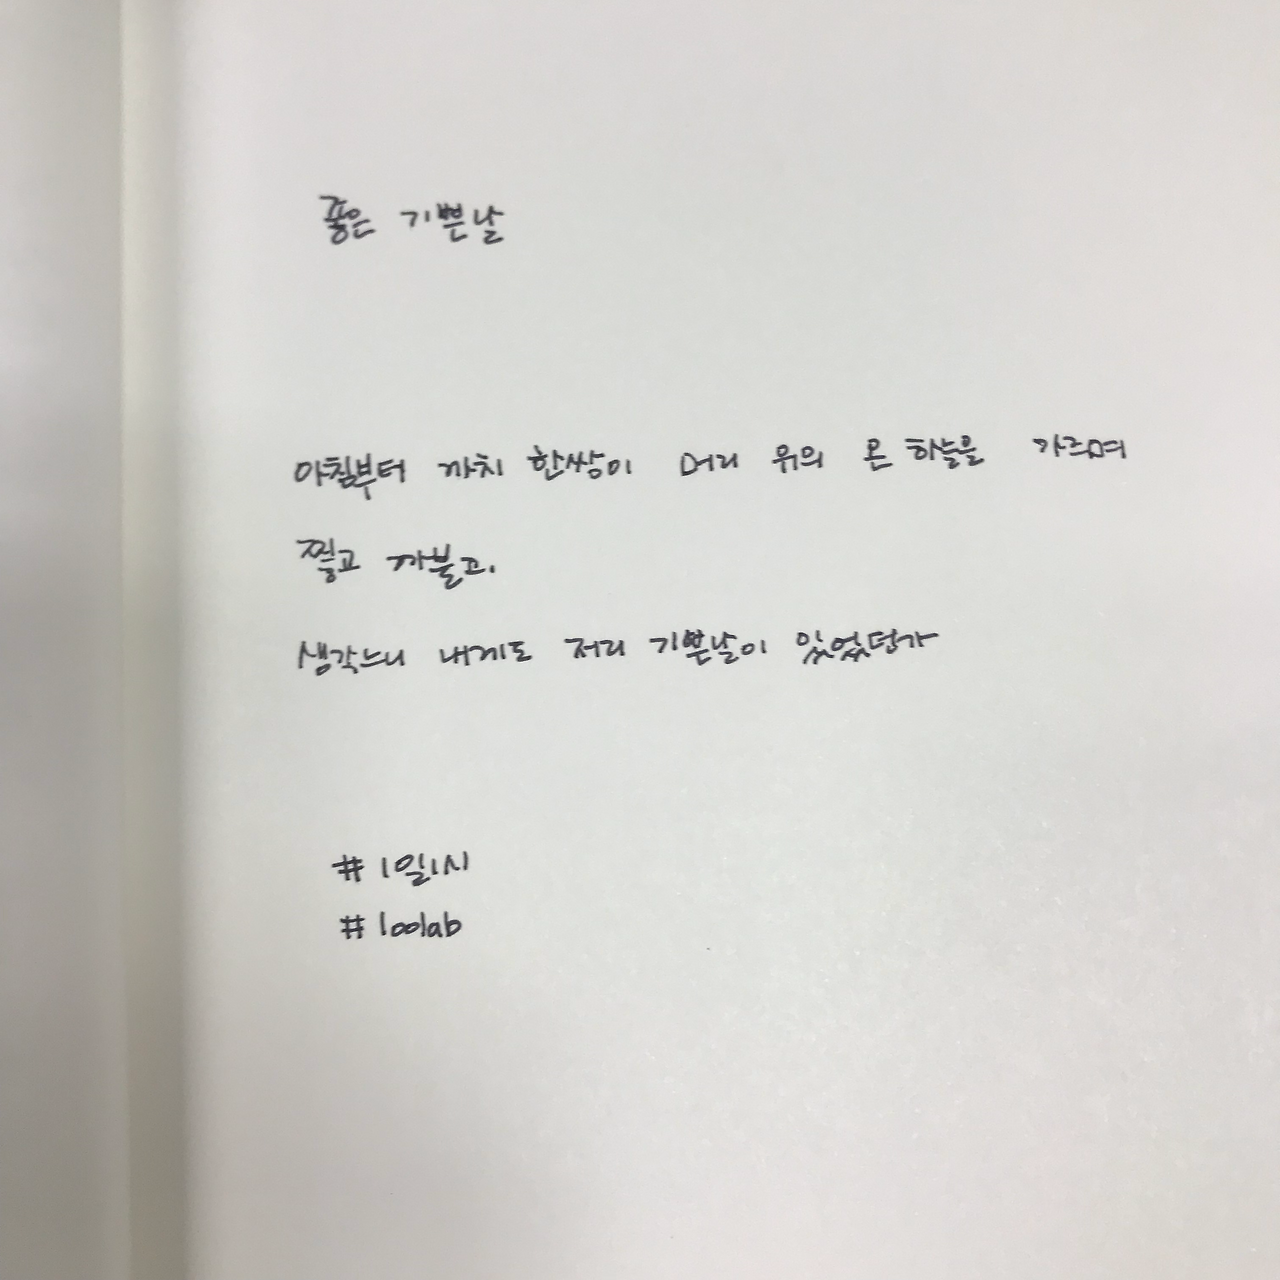 좋은 기쁜날
아침부터 까치 한쌍이 머리 위의 온 하늘을 가르며
찧고 까불고.
생각느니 내게도 저리 기쁜날이 있었던가
# 1일1시
# 100lab